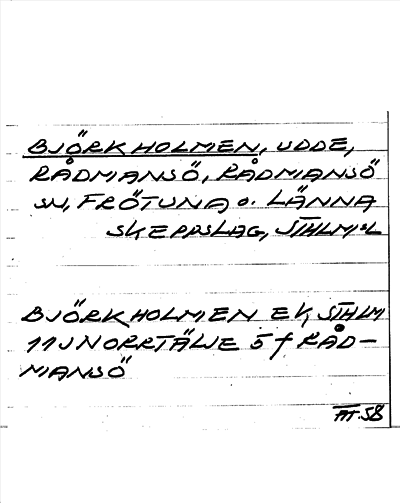 BJÖRKHOLMEN, UDDE,
RÅDMANSÖ, RÅDMANSÖ
SN, FRÖTUNA o. LÄNNA
SKEPPSLAG, STHLMSL
BJÖRKHOLMEN EK, STHLM
11J NORRTÄLJE 5 f RÅD-
MANSÖ
AT. 58